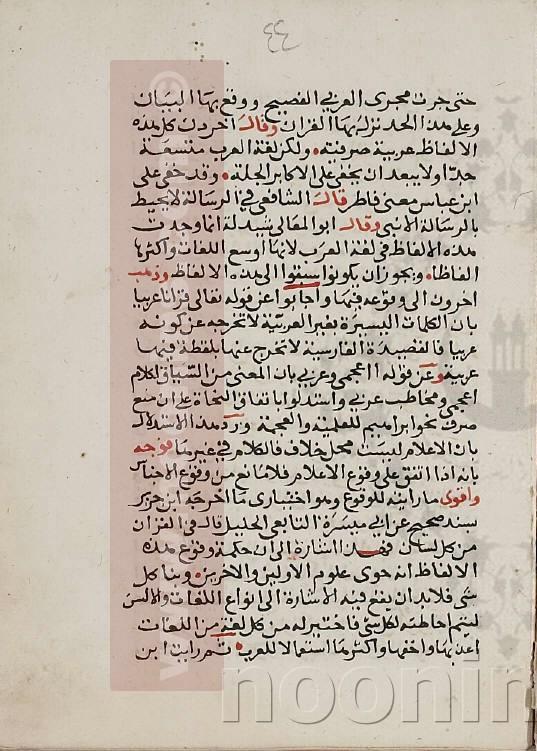 ٤٤
حتى جرت مجرى العربي الفصيح ووقع بها البيان
وعلى هذا الحد نزل بها القران وقال اخرون كل هذه
الالفاظ عربية صرفته ولكن لغة العرب متسعة
جدا ولا يبعد ان يخفى على الاكابر الجلة وقد خفى على
ابن عباس معنى فاطر قال الشافعي في الرسالة لا يحيط
بالرسالة الا نبى وقال ابو المعالى شيدلة انما وجدت
هذه الالفاظ في لغة العرب لانها اوسع اللغات واكثرها
الفاظا ويجوز ان يكونوا سبقوا الى هذه الالفاظ وذهب
اخرون الى وقوعه فيها واجابوا عن قوله تعالى قرانا عربيا
بان الكلمات اليسيرة بغير العربية لا تخرجه عن كونه
عربيا فالقصيدة الفارسية لا تخرج عنها بلفظة فيها
عربية وعن قوله ااعجمى وعربي بان المعنى من السياق اكلام
اعجمى ومخاطب عربي واستدلوا باتفاق النحاة على ان منع
صرف نحو ابراهيم للعلمية والعجمة ورد هذا الاستدلال
بان الاعلام ليست محل خلاف فالكلام في غيرها فوجه
بانه اذا اتفق على وقوع الاعلام فلا مانع من وقوع الاجناس
واقوى ما رايته للوقوع وهو اختيارى ما اخرجه ابن جرير
بسند صحيح عن ابي ميسرة التابعي الجليل قال في القران
من كل لسان فهذا اشارة الى ان حكمة وقوع هذه
الالفاظ انه حوى علوم الاولين والاخرين ونبا كل
شى فلا بد ان يقع فيه الاشارة الى انواع اللغات والالسن
ليتم احاطته لكل شى فاختير له من كل لغة من اللغات
اعذبها واخفها واكثرها استعمالا للعرب ثم رايت ابن
noonin